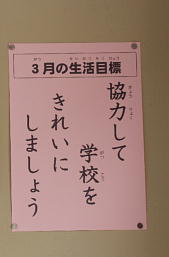 3月の生活目標
協力して
学校を
きれいに
しましょう